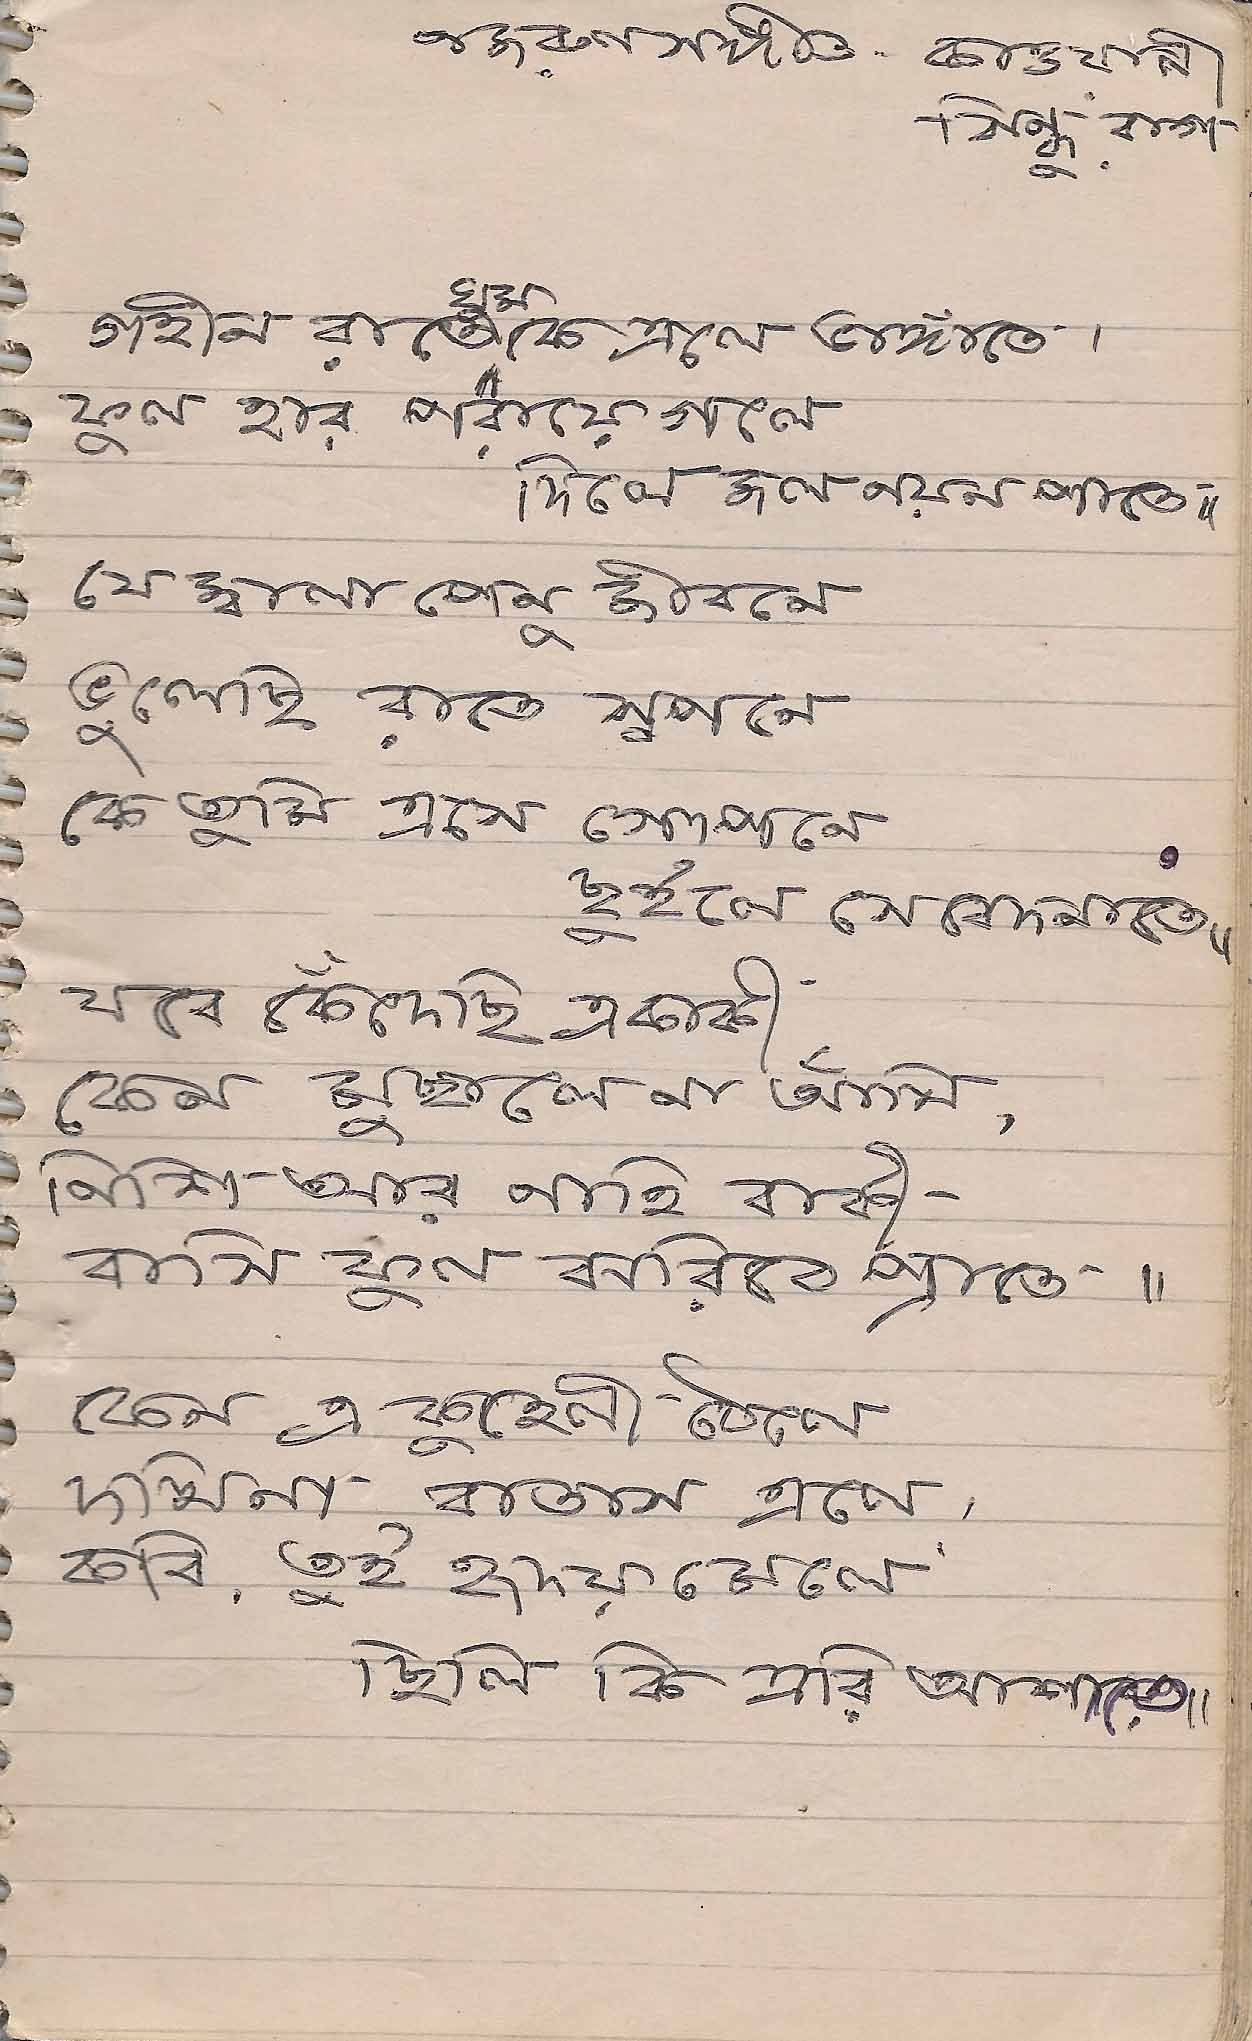 নজরুল সঙ্গীত - কাওয়ালী
সিন্ধু রাগ
গহীন রাতে ঘুম কে এলে ভাঙ্গাতে।
ফুল হার পরায়ে গলে
দিলে জল নয়ন পাতে॥
যে জ্বালা পেনু জীবনে
ভুলেছি রাতে স্বপনে
কে তুমি এসে গোপনে
ছুঁইলে সে বেদনাতে॥
যবে কেঁদেছি একাকী
কেন মুছালে না আঁখি,
নিশি আর নাহি বাকী
বাসি ফুল ঝরিবে প্রাতে॥
কেন এ কুহেলী ঠেলে
দখিনা বাতাস এলে,
কবি, তুই হৃদয় মেলে
ছিলি কি এরি আশাতে॥